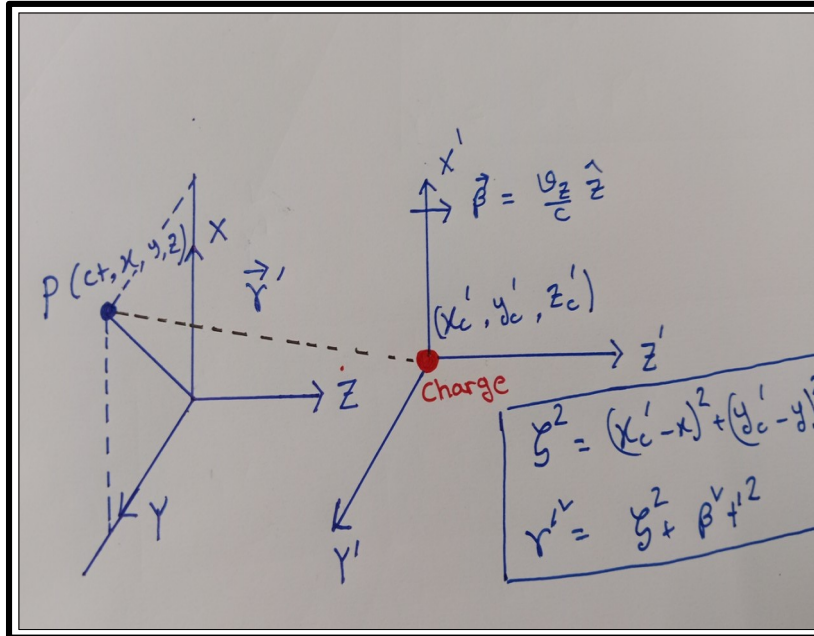 X'
β⃗ = v_z/c ẑ
X
P(ct, x, y, z)
r⃗'
(x_c', y_c', z_c')
Z'
Z
Charge
Y
Y'
ζ² = (x_c' - x)² + (y_c' - y)²
r'² = ζ² + β² t'²